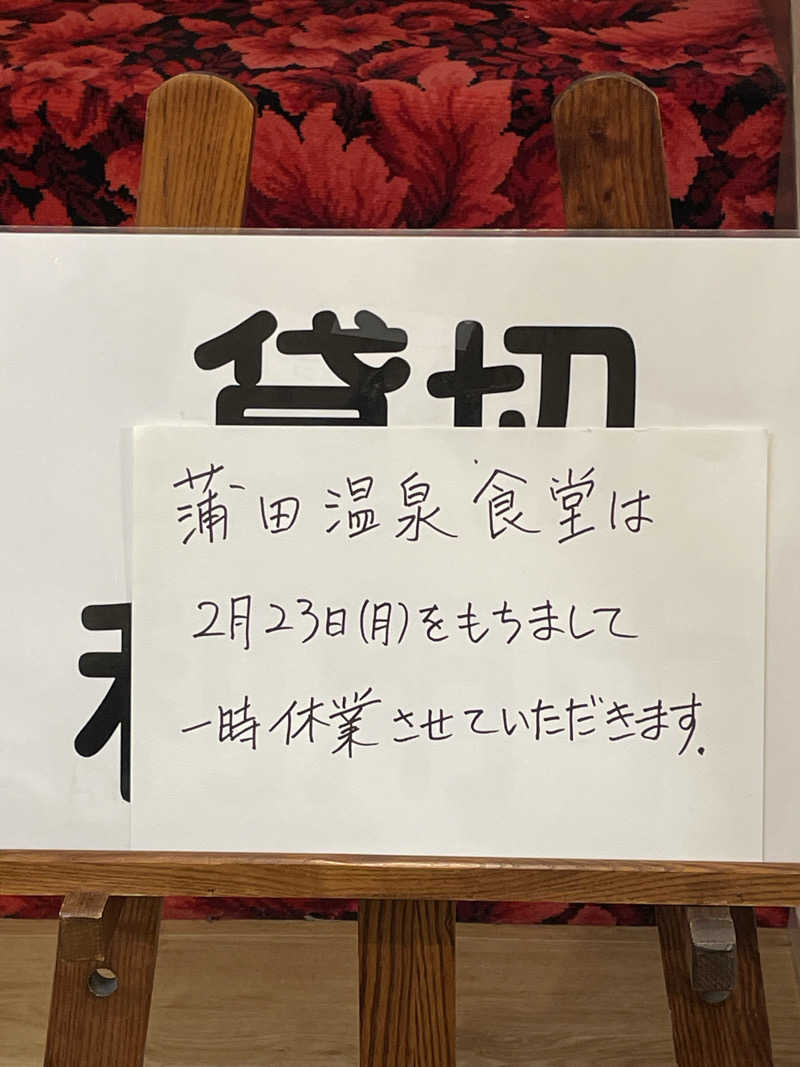 貸切
蒲田温泉食堂は
2月23日(月)をもちまして
一時休業させていただきます.